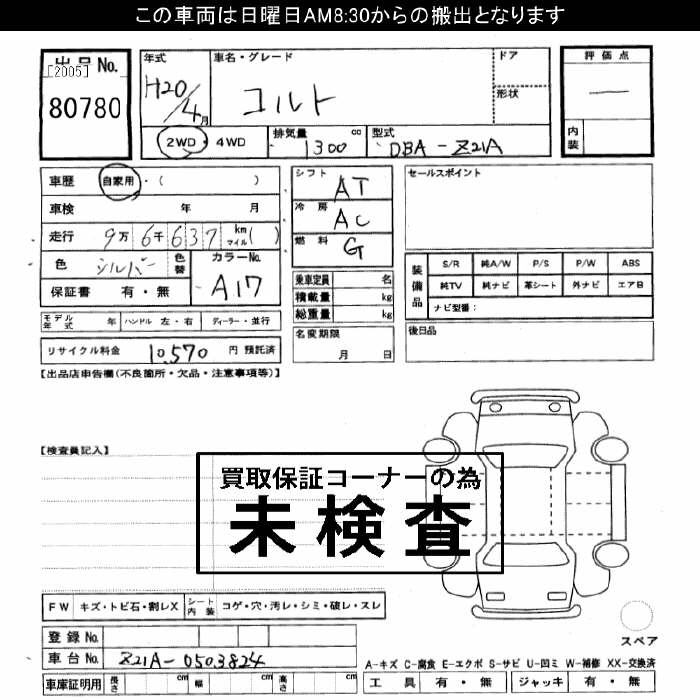 この車両は日曜日AM8:30からの搬出となります
出品No.
[2005]
80780
年式
H20/4月
車名・グレード
コルト
ドア
形状
評価点
―
内装
2WD・4WD
排気量 cc
1300
型式
DBA-Z21A
車歴 自家用・( )
車検 年 月
走行 9万6千637 km マイル( )
色 シルバー 色替
カラーNo.
A17
保証書 有・無
シフト
AT
冷房
AC
燃料
G
乗車定員 名
積載量 kg
総重量 kg
名変期限
月 日
セールスポイント
装備品
S/R 純A/W P/S P/W ABS
純TV 純ナビ 革シート 外ナビ エアB
ナビ型番:
後日品
モデル年式 年 ハンドル 左・右 ディーラー・並行
リサイクル料金 10,570 円 預託済
【出品店申告欄(不良箇所・欠品・注意事項等)】
【検査員記入】
買取保証コーナーの為
未検査
FW キズ・トビ石・割レX シート内装 コゲ・穴・汚レ・シミ・破レ・スレ
登録No.
車台No. Z21A-0503824
車庫証明用 長さ cm 幅 cm 高さ cm
スペア
A-キズ C-腐食 E-エクボ S-サビ U-凹ミ W-補修 XX-交換済
工具 有・無 ジャッキ 有・無